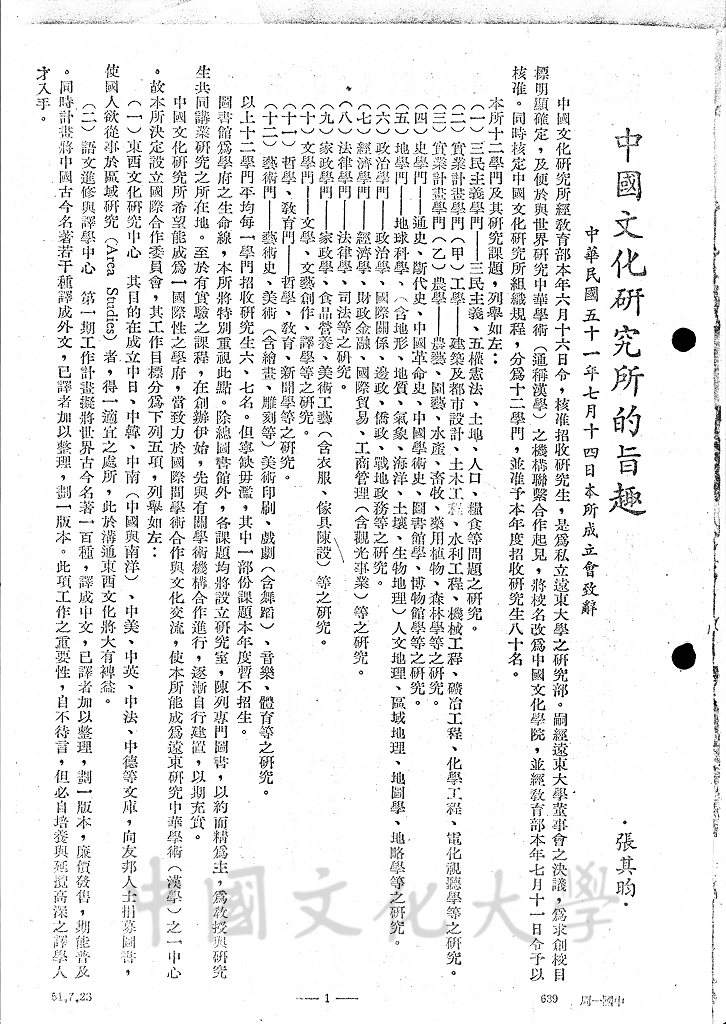 中國文化研究所的旨趣
中華民國五十一年七月十四日本所成立會致辭
·張其昀·
中國文化研究所經教育部本年六月十六日令，核准招收研究生，是為私立遠東大學之研究部。嗣經遠東大學董事會之決議，為求創校目
標明顯確定，及便於與世界研究中華學術（通稱漢學）之機構聯繫合作起見，將校名改為中國文化學院，並經教育部本年七月十一日令予以
核准。同時核定中國文化研究所組織規程，分為十二學門，並准予本年度招收研究生八十名。
本所十二學門及其研究課題，列舉如左：
（一）三民主義學門——三民主義、五權憲法、土地、人口、糧食等問題之研究。
（二）實業計畫學門（甲）工學——建築及都市設計、土木工程、水利工程、機械工程、礦冶工程、化學工程、電化視聽學等之研究。
（三）實業計畫學門（乙）農學——農藝、園藝、水產、畜牧、藥用植物、森林學等之研究。
（四）史學門——通史、斷代史、中國革命史、中國學術史、圖書館學、博物館學等之研究。
（五）地學門——地球科學、（含地形、地質、氣象、海洋、土壤、生物地理）人文地理、區域地理、地圖學、地略學等之研究。
（六）政治學門——政治學、國際關係、邊政、僑政、戰地政務等之研究。
（七）經濟學門——經濟學、財政金融、國際貿易、工商管理（含觀光事業）等之研究。
（八）法律學門——法律學、司法等之研究。
（九）家政學門——家政學、食品營養、美術工藝（含衣服、傢具陳設）等之研究。
（十）文學門——文學、文藝創作、譯學等之研究。
（十一）哲學、教育門——哲學、教育、新聞學等之研究。
（十二）藝術門——藝術史、美術（含繪畫、雕刻等）美術印刷、戲劇（含舞蹈）、音樂、體育等之研究。
以上十二學門平均每一學門招收研究生六、七名。但寧缺毋濫，其中一部份課題本年度暫不招生。
圖書館為學府之生命線，本所將特別重視此點。除總圖書館外，各課題均將設立研究室，陳列專門圖書，以約而精為主，為教授與研究
生共同講業研究之所在地。至於有實驗之課程，在創辦伊始，先與有關學術機構合作進行，逐漸自行建置，以期充實。
中國文化研究所希望能成為一國際性之學府，當致力於國際間學術合作與文化交流，使本所能成為遠東研究中華學術（漢學）之一中心
。故本所決定設立國際合作委員會，其工作目標分為下列五項，列舉如左：
（一）東西文化研究中心　其目的在成立中日、中韓、中南（中國與南洋）、中美、中英、中法、中德等文庫，向友邦人士捐募圖書，
使國人欲從事於區域研究（Area Studies）者，得一適宜之處所，此於溝通東西文化將大有裨益。
（二）語文進修與譯學中心　第一期工作計畫擬將世界古今名著一百種，譯成中文，已譯者加以整理，劃一版本，廉價發售，期能普及
。同時計畫將中國古今名著若干種譯成外文，已譯者加以整理，劃一版本。此項工作之重要性，自不待言，但必自培養與延攬高深之譯學人
才入手。
中國文化大學
51,7,23
— 1 —
639
中國一周